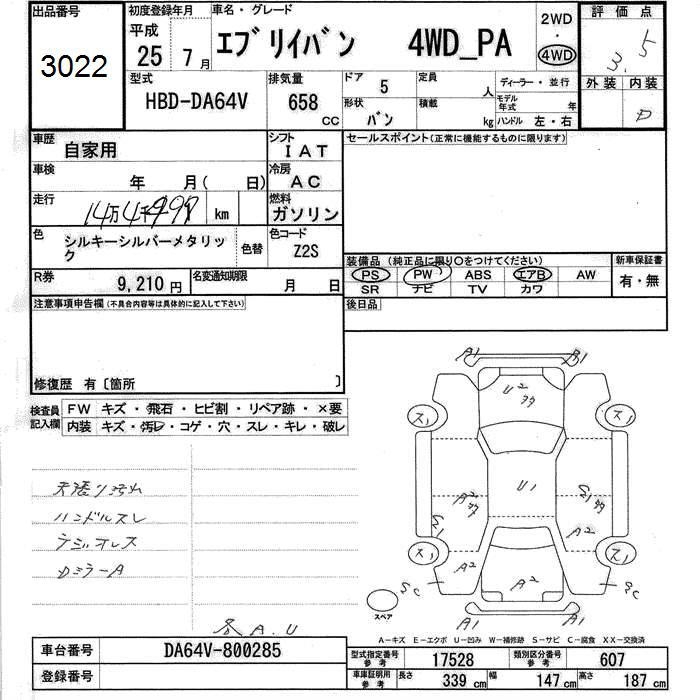 出品番号
3022
初度登録年月
平成
25年 7月
車名・グレード
エブリイバン 4WD_PA
2WD
・
4WD
評価点
3.5
外装 内装
D
型式
HBD-DA64V
排気量
658 CC
ドア 5
形状 バン
定員 人
積載 kg
ディーラー・並行
モデル年式 年
ハンドル 左・右
車歴 自家用
シフト IAT
車検 年 月( 日)
冷房 AC
走行 km
燃料 ガソリン
色 シルキーシルバーメタリック 色替
色コード Z2S
R券 9,210円
名変通知期限 月 日
セールスポイント(正常に機能するものに限ります)
装備品 (純正品に限り○をつけてください)
PS PW ABS エアB AW
SR ナビ TV カワ
新車保証書
有・無
後日品
注意事項申告欄(不具合内容等は具体的に記入して下さい)
修復歴 有〔箇所 〕
検査員記入欄
FW キズ・飛石・ヒビ割・リペア跡・×要
内装 キズ・汚レ・コゲ・穴・スレ・キレ・破レ
ハンドルスレ
ラジオレス
DミラーA
各A.U
A1 B1
U2
ス1 ス1
U1
A2
A2
ス1 ス1
A2 A2
SC SC
A1 A1
スペア
A-キズ E-エクボ U-凹み W-補修跡 S-サビ C-腐食 XX-交換済
車台番号 DA64V-800285
登録番号
型式指定番号 参考 17528
類別区分番号 参考 607
車庫証明用 参考 長さ 339cm 幅 147cm 高さ 187cm